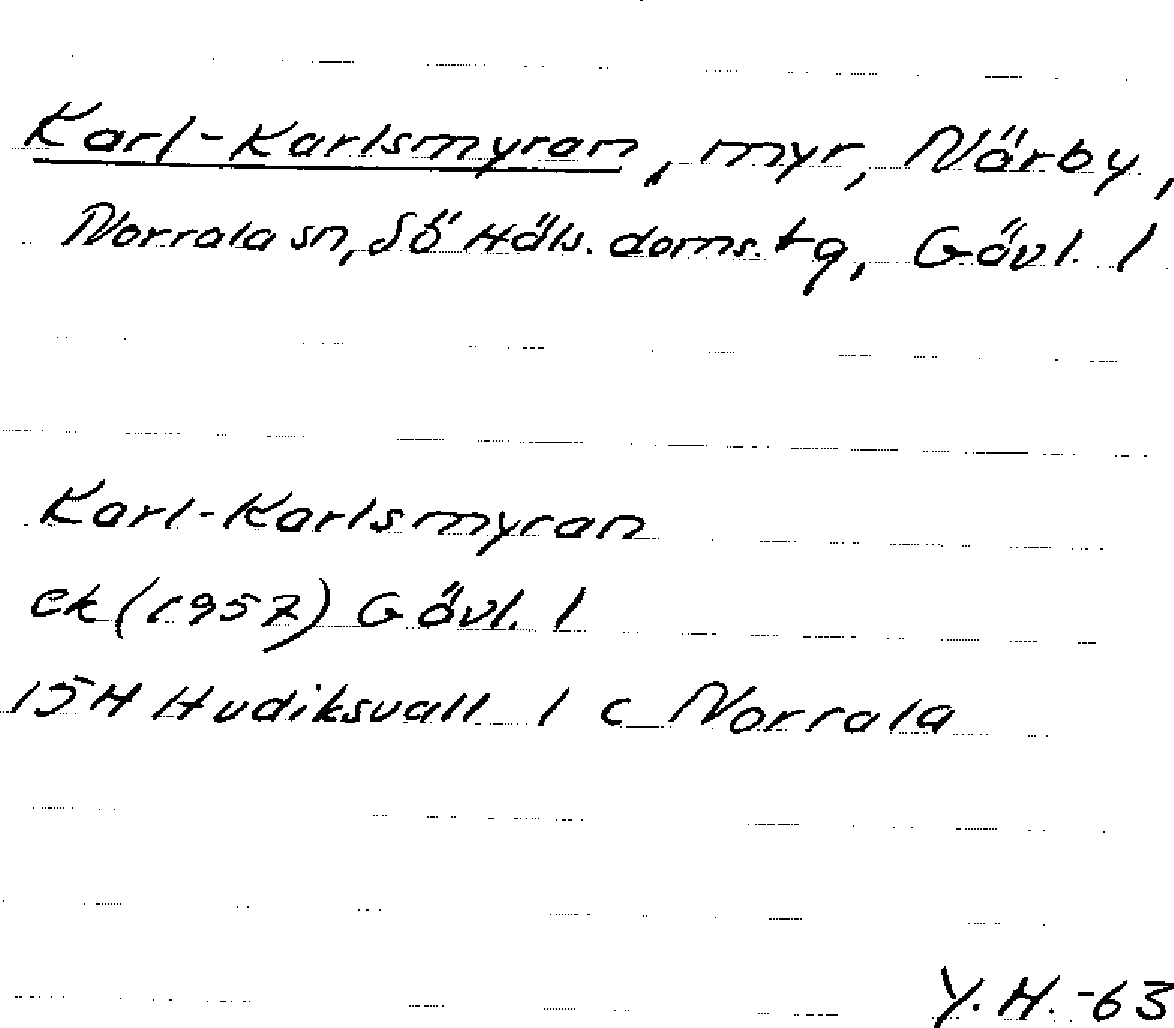 Karl-Karlsmyran, myr, Närby,
Norrala sn, Sö Häls. doms. tg, Gävl. l
Karl-Karlsmyran
ek (1957) Gävl. l
15H Hudiksvall 1 c Norrala
Y.H.-63